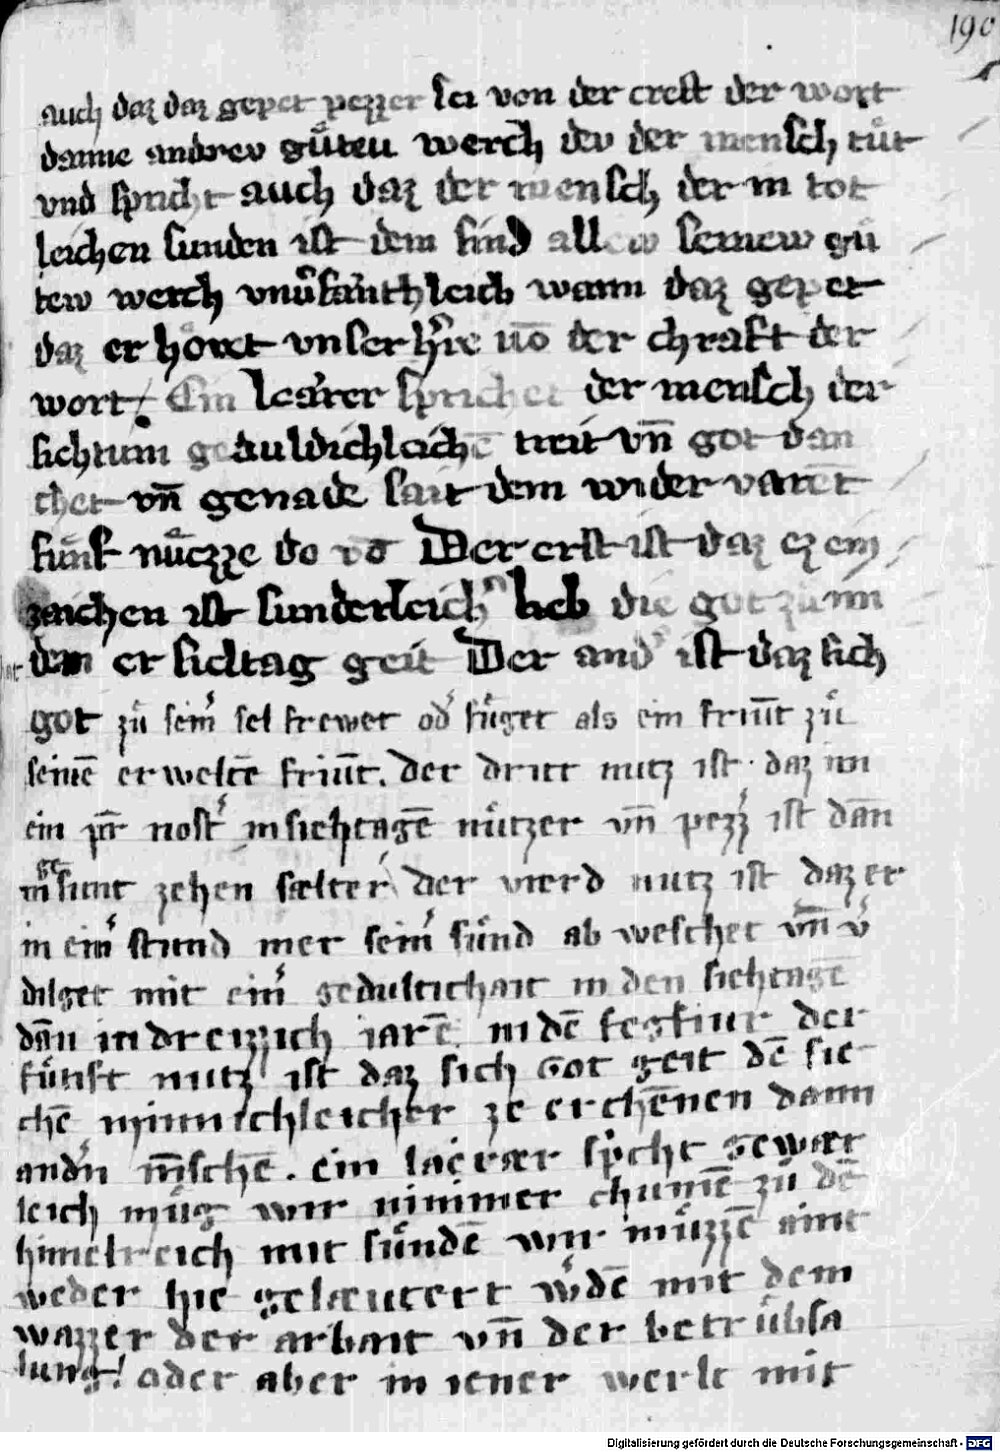 190
auch daz daz gepet pezzer sei von der creft der wort
danne andrev gůtev werch dev der mensch tůt
vnd spricht auch daz der mensch der in tot
leichen sunden ist dem sind allew seinew gů
tew werch vnwann daz gepet
daz er horet vnser hre uō der chraft der
wort. Ein lerer sprichet der mensch der
sichtum geduldichleichē treit vn̄ got dan
chet vn̄ genade sait dem wider varēt
fůnf nůczze do vō Der erst ist daz ez ein
zaichen ist sunderleich lieb die got zů im
dem er sichtag geit Der and ist daz sich
got zů seinr sel frewet od fůget als ein friūt zů
seinē erweltē friūt. der dritt nutz ist. daz im
ein pr̄ nostr in siehtagē nůtzer vn̄ pezzr ist dān
in gesunt zehen sælter der vierd nutz ist daz er
in einr stund mer seinr sůnd ab weschet vn̄ v
dilget mit einr gedultichait in den siehtagē
dān in dreizzich iarē in dē fegfiur der
fůnft nutz ist daz sich Got geit dē sie
chē minnichleicher ze erchēnen dann
andn m̄schē. ein lærær spcht gewær
leich můg wir nimmer chumē zů dē
himelreich mit sůndē wir můzzē aint
weder hie gelæutert wdē mit dem
wazzer der arbait vn̄ der betrůbsa
lung! oder aber in iener werlt mit
Digitalisierung gefördert durch die Deutsche Forschungsgemeinschaft - DFG